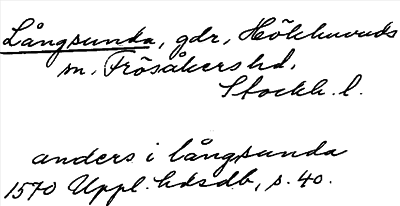 Långsunda, gdr, Hökhuvuds
sn, Frösåkers hd,
Stockh. l.
anders i långsunda
1570 Uppl. hdsdb, s. 40.